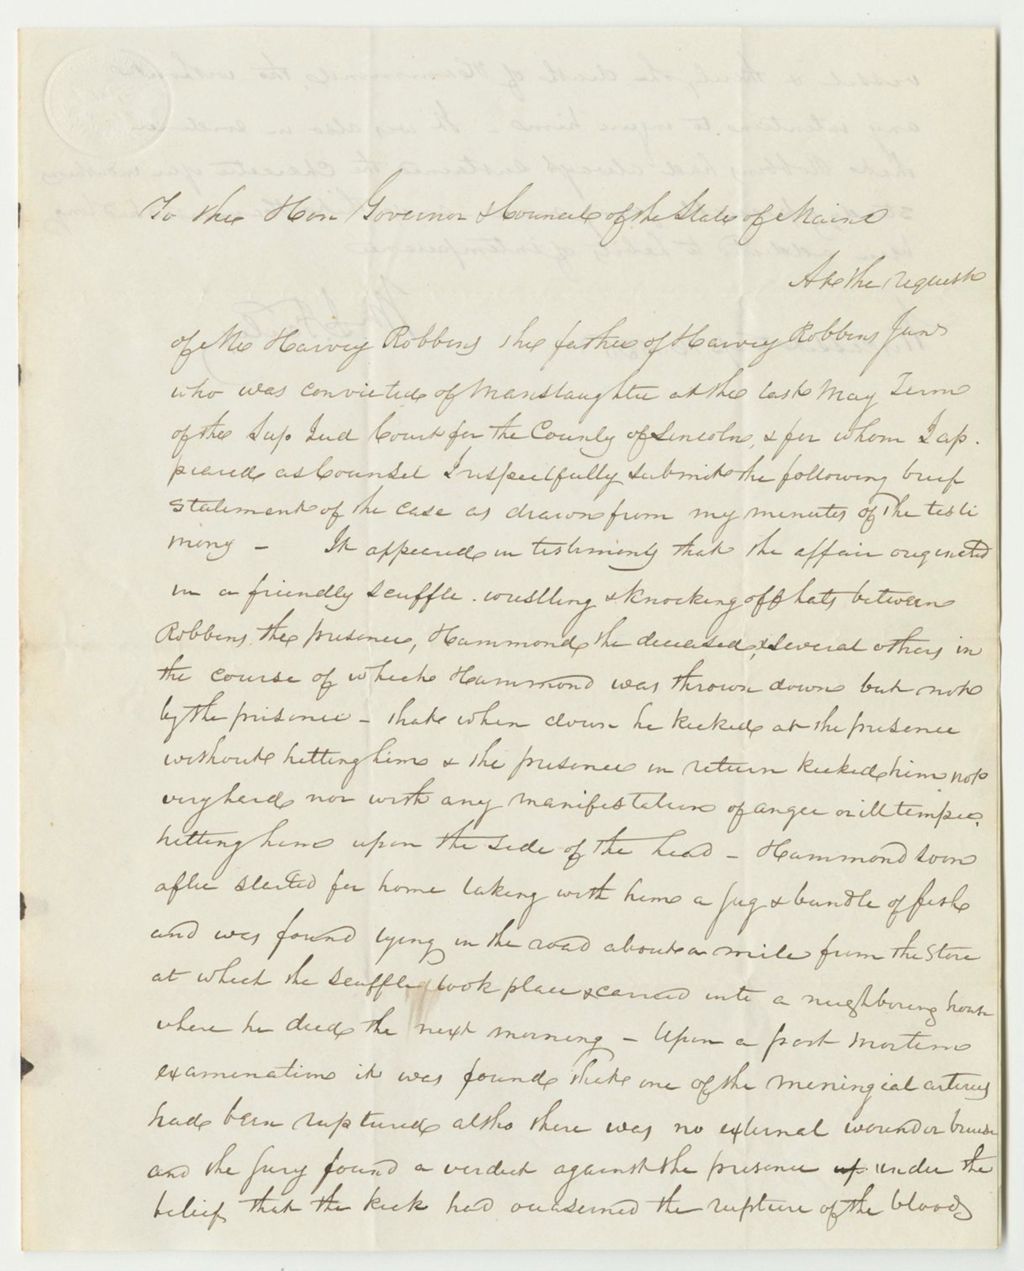 To the Hon Governor & Council of the State of Maine
At the request
of Mr Harvey Robbins the father of Harvey Robbins Junr
who was convicted of Manslaughter at the last May Term
of the Sup Jud Court for the County of Lincoln, & for whom I ap-
peared as Counsel I respectfully submit the following brief
statement of the case as drawn from my minutes of the testi
mony – It appeared in testimony that the affair originated
in a friendly scuffle. wrestling & knocking off hats between
Robbins the prisoner, Hammond the deceased, & several others in
the course of which Hammond was thrown down but not
by the prisoner – that when down he kicked at the prisoner
without hitting him & the prisoner in return kicked him not
very hard nor with any manifestation of anger or ill temper.
hitting him upon the side of the head – Hammond soon
after started for home taking with him a jug & bundle of fish
and was found lying in the road about a mile from the Store
at which the scuffle took place & carried into a neighboring house
where he died the next morning – Upon a post mortem
examination it was found that one of the meningial arteries
had been ruptured altho there was no external wound or bruise
and the Jury found a verdict against the prisoner under the
belief that the kick had occasioned the rupture of the blood